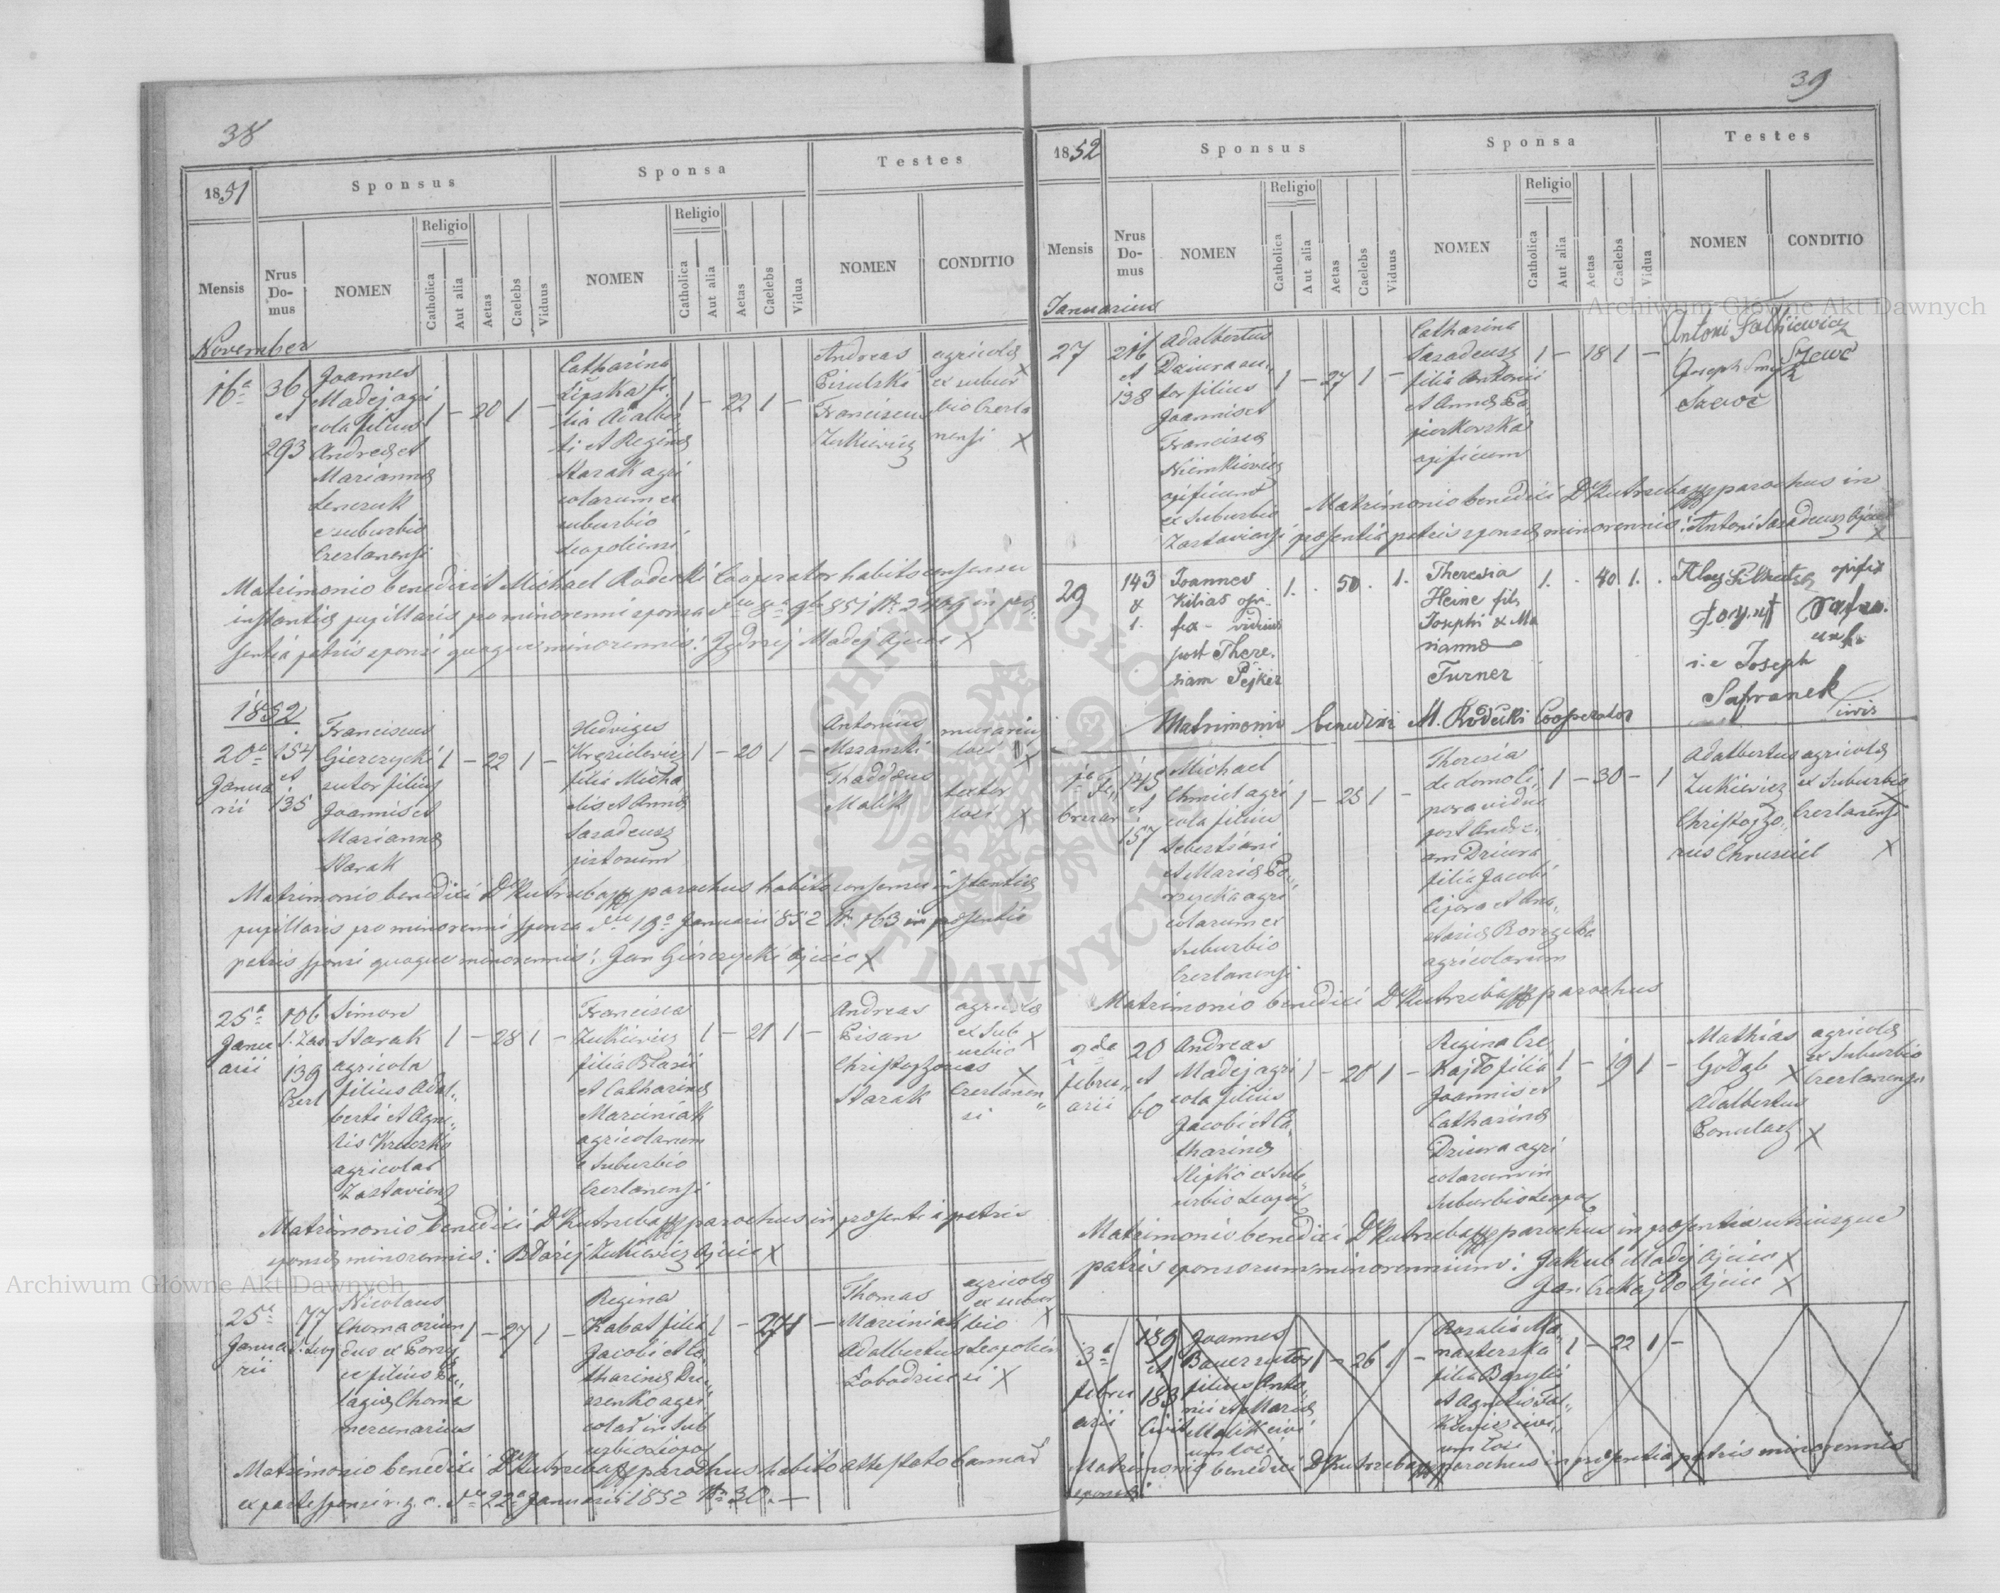 38
1851
Sponsus
Sponsa
Testes
Mensis
Nrus Domus
NOMEN
Religio
Catholica
Aut alia
Aetas
Caelebs
Viduus
NOMEN
Religio
Catholica
Aut alia
Aetas
Caelebs
Vidua
NOMEN
CONDITIO
November
16a
36
et
293
Joannes
Madej agri
cola filius
Andreæ et
Mariannæ
Lenczuk
e suburbio
Czerlanensi
1 – 20 1 –
Catharina
Lipska fi
lia Adalber
ti et Reginæ
Starak agri
colarum ex
suburbio
Leopoliensi
1 – 22 1 –
Andreas
Franciscus
Zukiewicz
agricolæ
ex subur
bio Czerla
nensi X
Matrimonio benedixit Michael Rodecki Cooperator habito consensu
instantiæ pupillaris pro minorenni sponsa
sentia patris sponsi quoque minorennis: Jędrzej Madej Ojciec X
1852
20a
Janua
rii
154
et
135
Franciscus
Gierczycki
sutor filius
Joannis et
Mariannæ
Starak
1 – 22 1 –
Hedviges
filia Micha
elis et Annæ
Saradeusz
pistorum
1 – 20 1 –
Antonius
Mazanski
Thaddæus
Malik
loci X
loci X
Matrimonio benedixi Dr Kutrzeba parochus habito consensu instantiæ
pupillaris pro minorenni sponsa dto 19a Januarii 852 N. 163 in præsentia
patris sponsi quoque minorennis: Jan Gierczycki Ojciec X
25a
Janu
arii
106
139
Czerl
Simon
Starak
agricola
filius Adal
berti et Agne
tis Kruczko
agricolar
Zastaviens
1 – 28 1 –
Francisca
Zukiewicz
filia Blasii
et Catharinæ
Marciniak
agricolarum
e suburbio
Czerlanensi
1 – 21 1 –
Andreas
Pisan
Christophorus
Starak
agricolæ
ex Sub
urbio X
Czerlanen
si
Matrimonio benedixi Dr Kutrzeba parochus in præsentia patris
sponsæ minorennis: Błażej Zukiewicz Ojciec X
25a
Janua
rii
77
Nicolaus
filius Pe
lagiæ Choma
mercenarius
1 – 27 1 –
Regina
Kabat filia
Jacobi et Ca
tharinæ
agri
colar in Sub
urbio Leopol
1 – 24 1 –
Thomas
Marciniak
Adalbertus
Łobodzic
agricolæ
ex subur
bio X
Leopolien
si X
Matrimonio benedixi Dr Kutrzeba parochus habito attestato bannor
ex parte sponsi r. g. c. dto 22a Januarii 1852 N. 30. –
39
1852
Sponsus
Sponsa
Testes
Mensis
Nrus Domus
NOMEN
Religio
Catholica
Aut alia
Aetas
Caelebs
Viduus
NOMEN
Religio
Catholica
Aut alia
Aetas
Caelebs
Vidua
NOMEN
CONDITIO
Januarius
27
216
et
138
Adalbertus
Dziura su
tor filius
Joannis et
Franciscæ
Niemkiewicz
opificum
ex suburbio
Zastaviensi
1 – 27 1 –
Catharina
Saradeusz
filia Antonii
et Annæ Pa
pierkovska
opificum
1 – 18 1 –
Antoni Falkiewicz
Szewc
Joseph
Szewc
Matrimonio benedixi Dr Kutrzeba parochus in
præsentia patris sponsæ minorennis: Antoni Saradeusz Ojciec
X
29
143
&
1.
Joannes
Kilias opi
fex – viduus
post There
siam Pejker
1. . 50 . 1.
Theresia
Heine fil.
Josephi & Ma
rianna
Turner
1. . 40 1. .
opifex
i. e Joseph
Safranek
civis
Matrimonio benedixi M. Rodecki Cooperator
1a Fe
bruar
145
et
157
Michael
Chmiel agri
cola filius
Sebastiani
et Mariæ
agri
colarum ex
suburbio
Czerlanensi
1 – 25 1 –
Theresia
de domo Li
pora vidua
post Andre
am Dziura
filia Jacobi
Lipora et Ana
stasiæ
agricolarum
1 – 30 – 1
Adalbertus
Zukiewicz
Christopho
rus Chmiel
agricolæ
ex Suburbio X
Czerlanensi
X
Matrimonio benedixi Dr Kutrzeba parochus
2da
febru
arii
20
et
60
Andreas
Madej agri
cola filius
Jacobi et Ca
tharinæ
Slipko ex sub
urbio Leopol
1 – 20 1 –
Regina Cze
kajło filia
Joannis et
Catharinæ
Dziura agri
colarum in
suburbio Leopol
1 – 19 1 –
Mathias
Gołąb X
Adalbertus
X
agricolæ
ex Suburbio
Czerlanensi
Matrimonio benedixi Dr Kutrzeba parochus in præsentia utriusque
patris sponsorum minorennium: Jakub Madej Ojciec X
Jan Czekajło Ojciec X
3a
febru
arii
189
et
183
Civit
Joannes
Bauer sutor
filius Anto
nii et Mariæ
Malik civi
um loci
1 – 26 1 –
Rosalia Mo
nasterska
filia Basylii
et Agnetis Fal
kiewicz civi
um loci
1 – 22 1 –
Matrimonio benedixi Dr Kutrzeba parochus in præsentia patris minorennis
sponsæ
Archiwum Główne Akt Dawnych
Archiwum Główne Akt Dawnych
ARCHIWUM GŁÓWNE AKT DAWNYCH